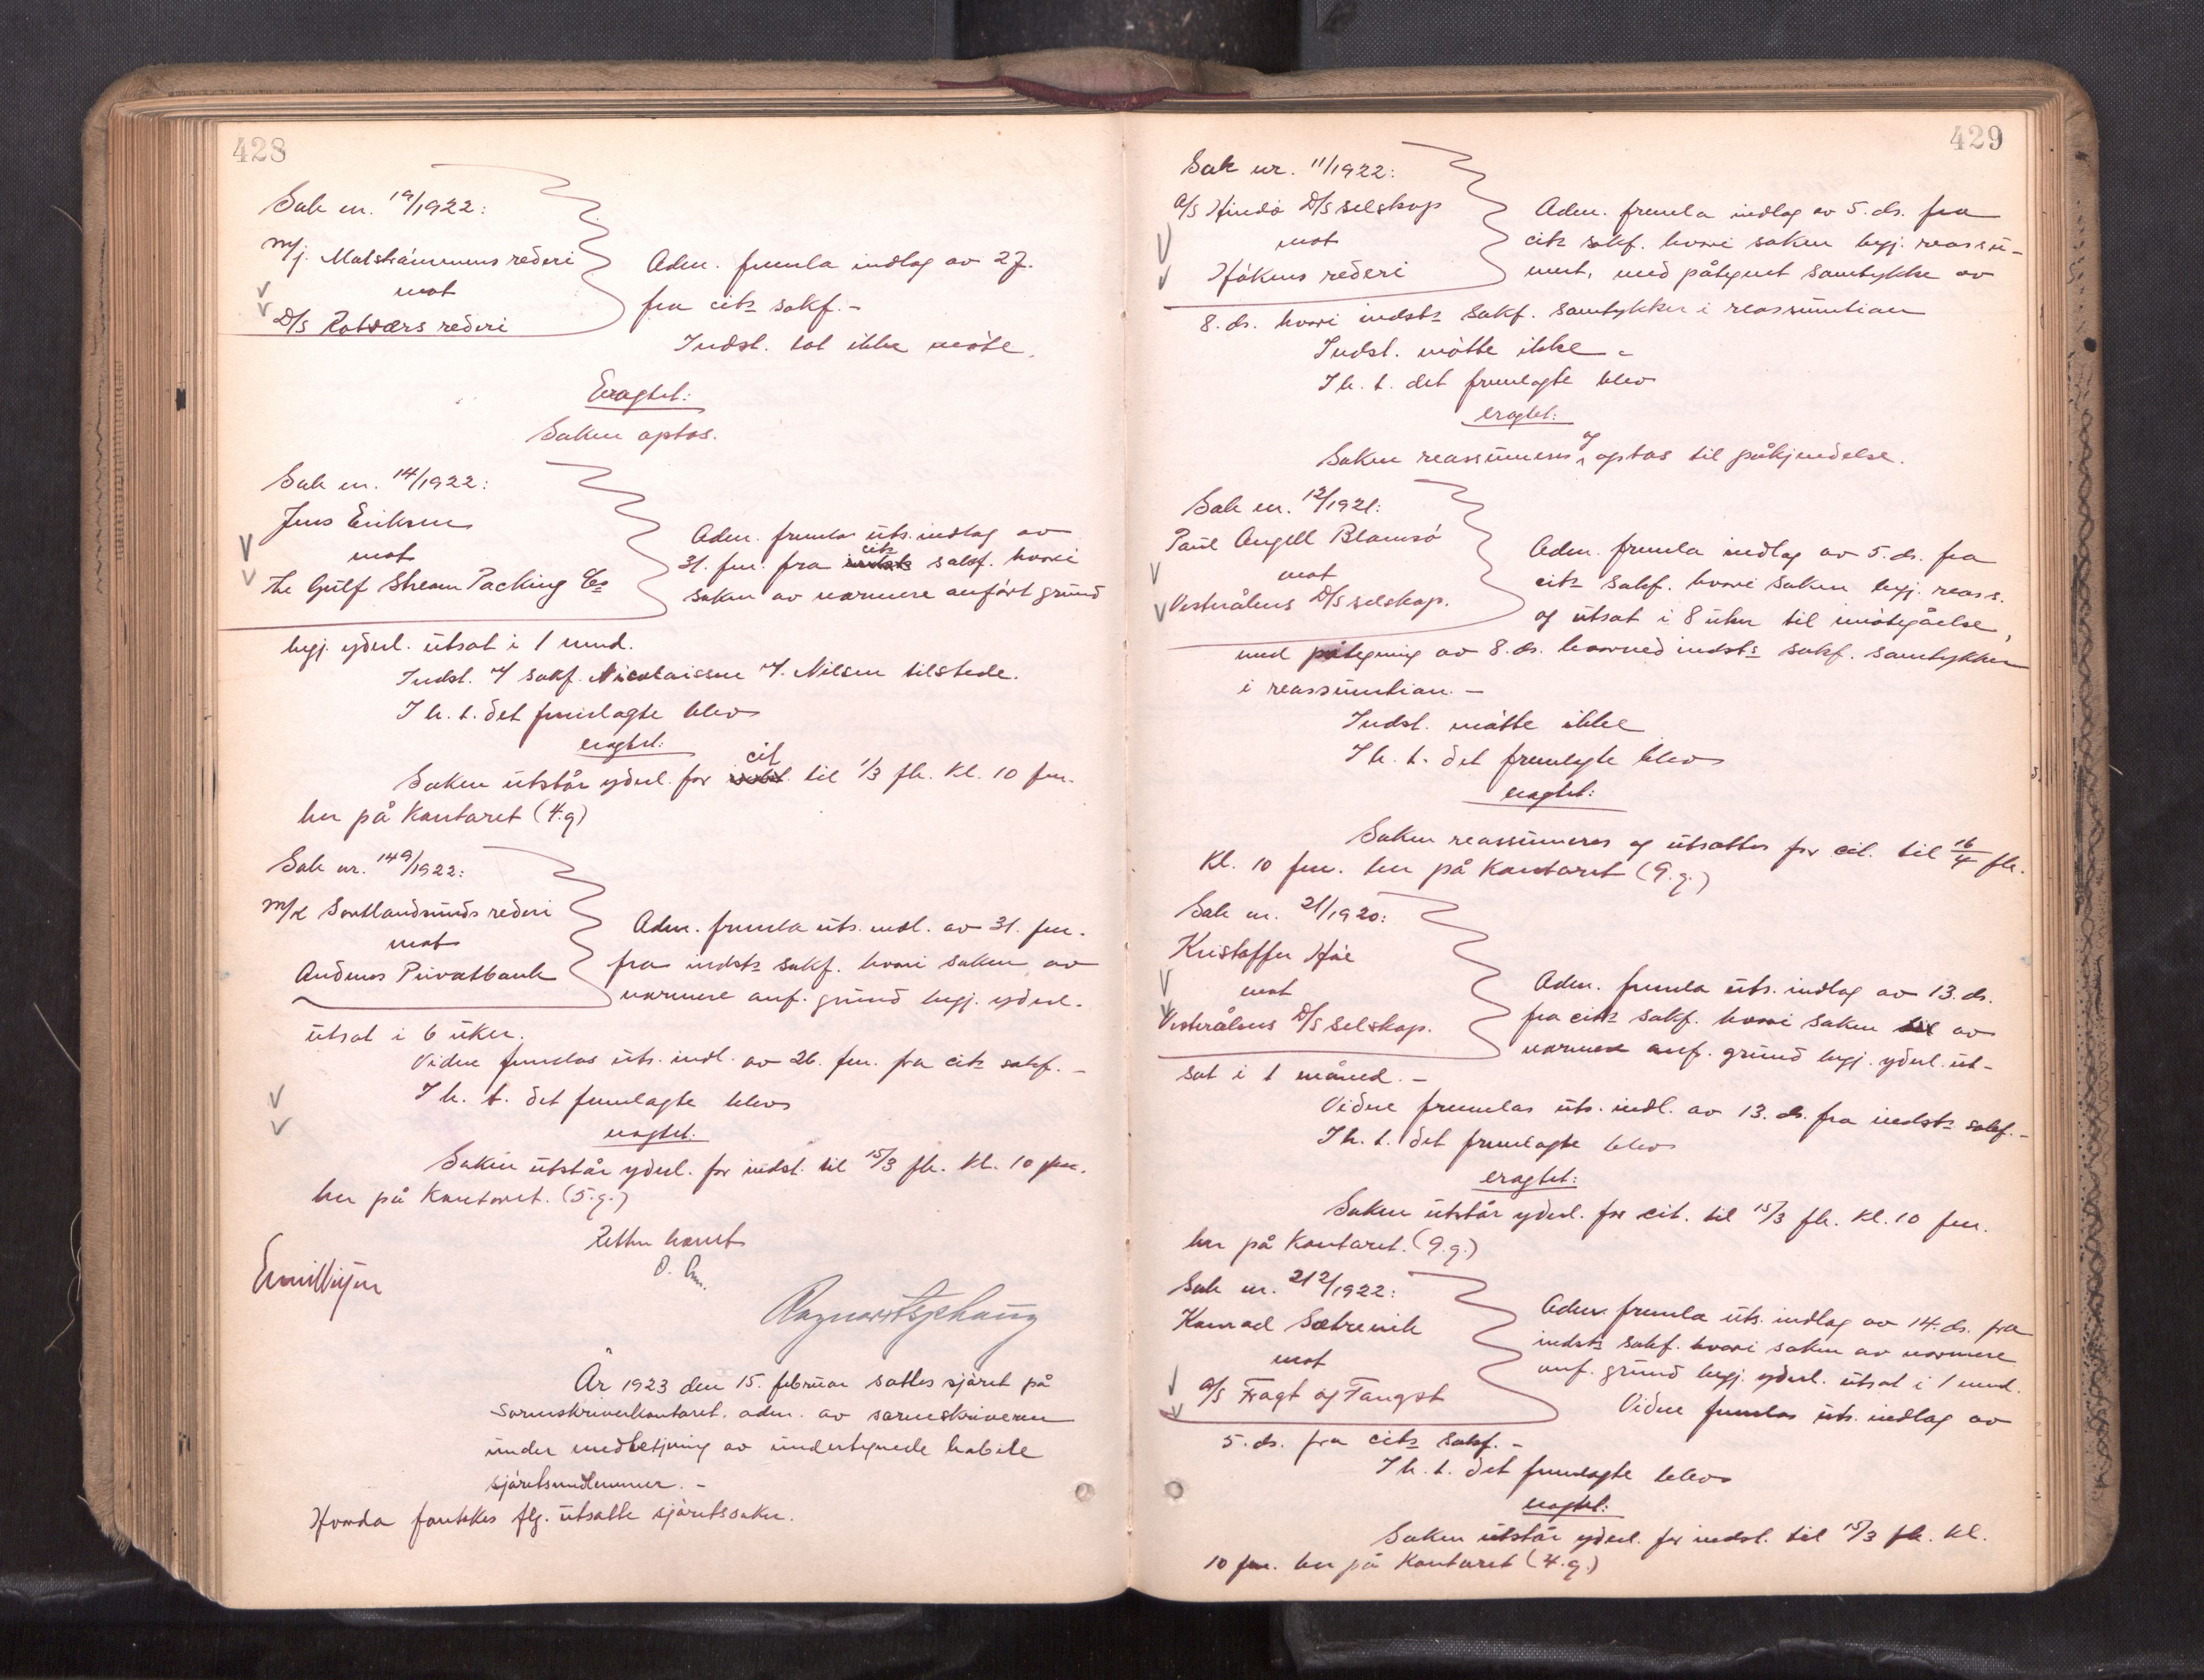 428
Sak nr. 19/1922:
M/j. Matshammens rederi
mot
D/s Rotværs rederi
Adm. fremla indlæg av 27.
fra citˢ sakf. –
Indst. lot ikke møte.
Eragtet:
Saken optas.
Sak nr. 14/1922:
Jens Eriksen
mot
The Gulf Stream Packing Co
Adm. fremla uts. indlæg av
31. f.m. fra indstˢ citˢ sakf. hvori
saken av nærmere anført grund
begj. yderl. utsat i 1 mnd.
Indst. v/ sakf. Nicolaissen v/ Nilsen tilstede.
I h. t. det fremlagte blev
eragtet:
Saken utstår yderl. for indst. cit til 1/3 fk. kl. 10 fm.
her på kontoret (4. g)
Sak nr. 149/1922:
M/k Sortlandsunds rederi
mot
Andenes Privatbank
Adm. fremla uts. indl. av 31. f.m.
fra indstˢ sakf. hvori saken av
nærmere anf. grund begj. yderl.
utsat i 6 uker.
Videre fremlas uts. indl. av 26. f.m. fra citˢ sakf. –
I h. t. det fremlagte blev
eragtet:
Saken utstår yderl. for indst. til 15/3 fk. kl. 10 fm.
her på kontoret. (5. g.)
Retten hævet
År 1923 den 15. februar sattes sjøret på
Sorenskriverkontoret. adm. av sorenskriveren
under medbetjening av undertegnede habile
sjøretsmedlemmer. –
Hvorda foretokes flg. utsatte sjøretssaker.
429
Sak nr. 11/1922:
A/s Hindø D/s selskap
mot
Håkens rederi
Adm. fremla indlæg av 5. ds. fra
citˢ sakf. hvori saken begj. reassu-
mert, med påtegnet samtykke av
8. ds. hvori indstˢ sakf. samtykker i reassumtion
Indst. møtte ikke –
I h. t. det fremlagte blev
eragtet:
Saken reassumeres og optas til påkjendelse.
Sak nr. 12/1921:
Paul Angell Blamsø
mot
Vesterålens D/s selskap.
Adm. fremla indlæg av 5. ds. fra
citˢ sakf. hvori saken begj. reass.
og utsat i 8 uker til imøtegåelse,
med påtegning av 8. ds. hvorved indstˢ sakf. samtykker
i reassumtion. –
Indst. møtte ikke
I h. t. det fremlagte blev
eragtet:
Saken reassumeres og utsattes for cit. til 16/4 fk.
kl. 10 fm. her på kontoret (9. g.)
Sak nr. 21/1920:
Kristoffer
mot
Vesterålens D/s selskap.
Adm. fremla uts. indlæg av 13. ds.
fra citˢ sakf. hvori saken av
nærmere anf. grund begj. yderl. ut-
sat i 1 måned. –
Videre fremlas uts. indl. av 13. ds. fra indstˢ sakf. –
I h. t. det fremlagte blev
eragtet:
Saken utstår yderl. for cit. til 15/3 fk. kl. 10 fm.
her på kontoret. (9. g.)
Sak nr. 212/1922:
Konrad Sætrevik
mot
A/s Fragt og Fangst
Adm. fremla uts. indlæg av 14. ds. fra
indstˢ sakf. hvori saken av nærmere
anf. grund begj. yderl. utsat i 1 mnd.
Videre fremlas uts. indlæg av
5. ds. fra citˢ sakf. –
I h. t. det fremlagte blev
eragtet:
Saken utstår yderl. for indst. til 15/3 fk. kl.
10 fm. her på kontoret (4. g.)